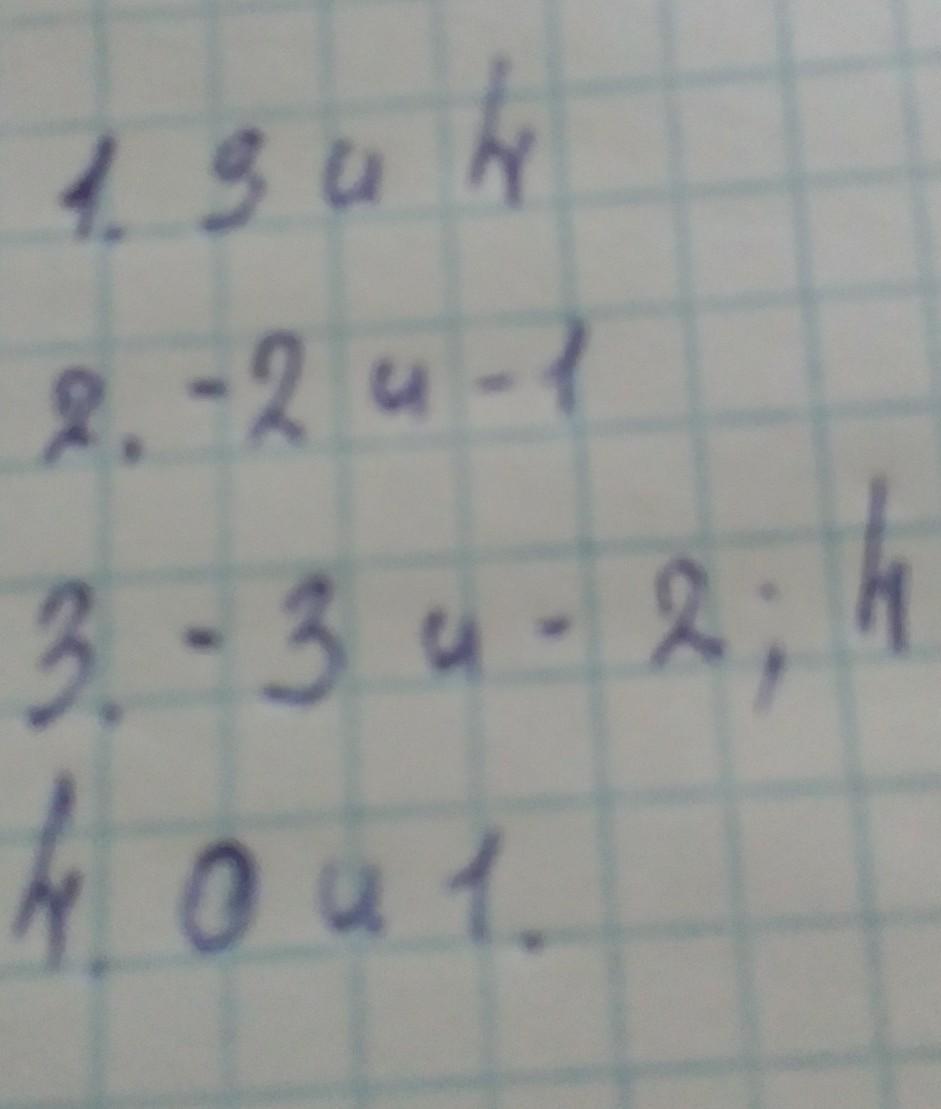 1. 3 и 4
2. -2 и -1
3. -3 и -2; 4
4. 0 и 1.